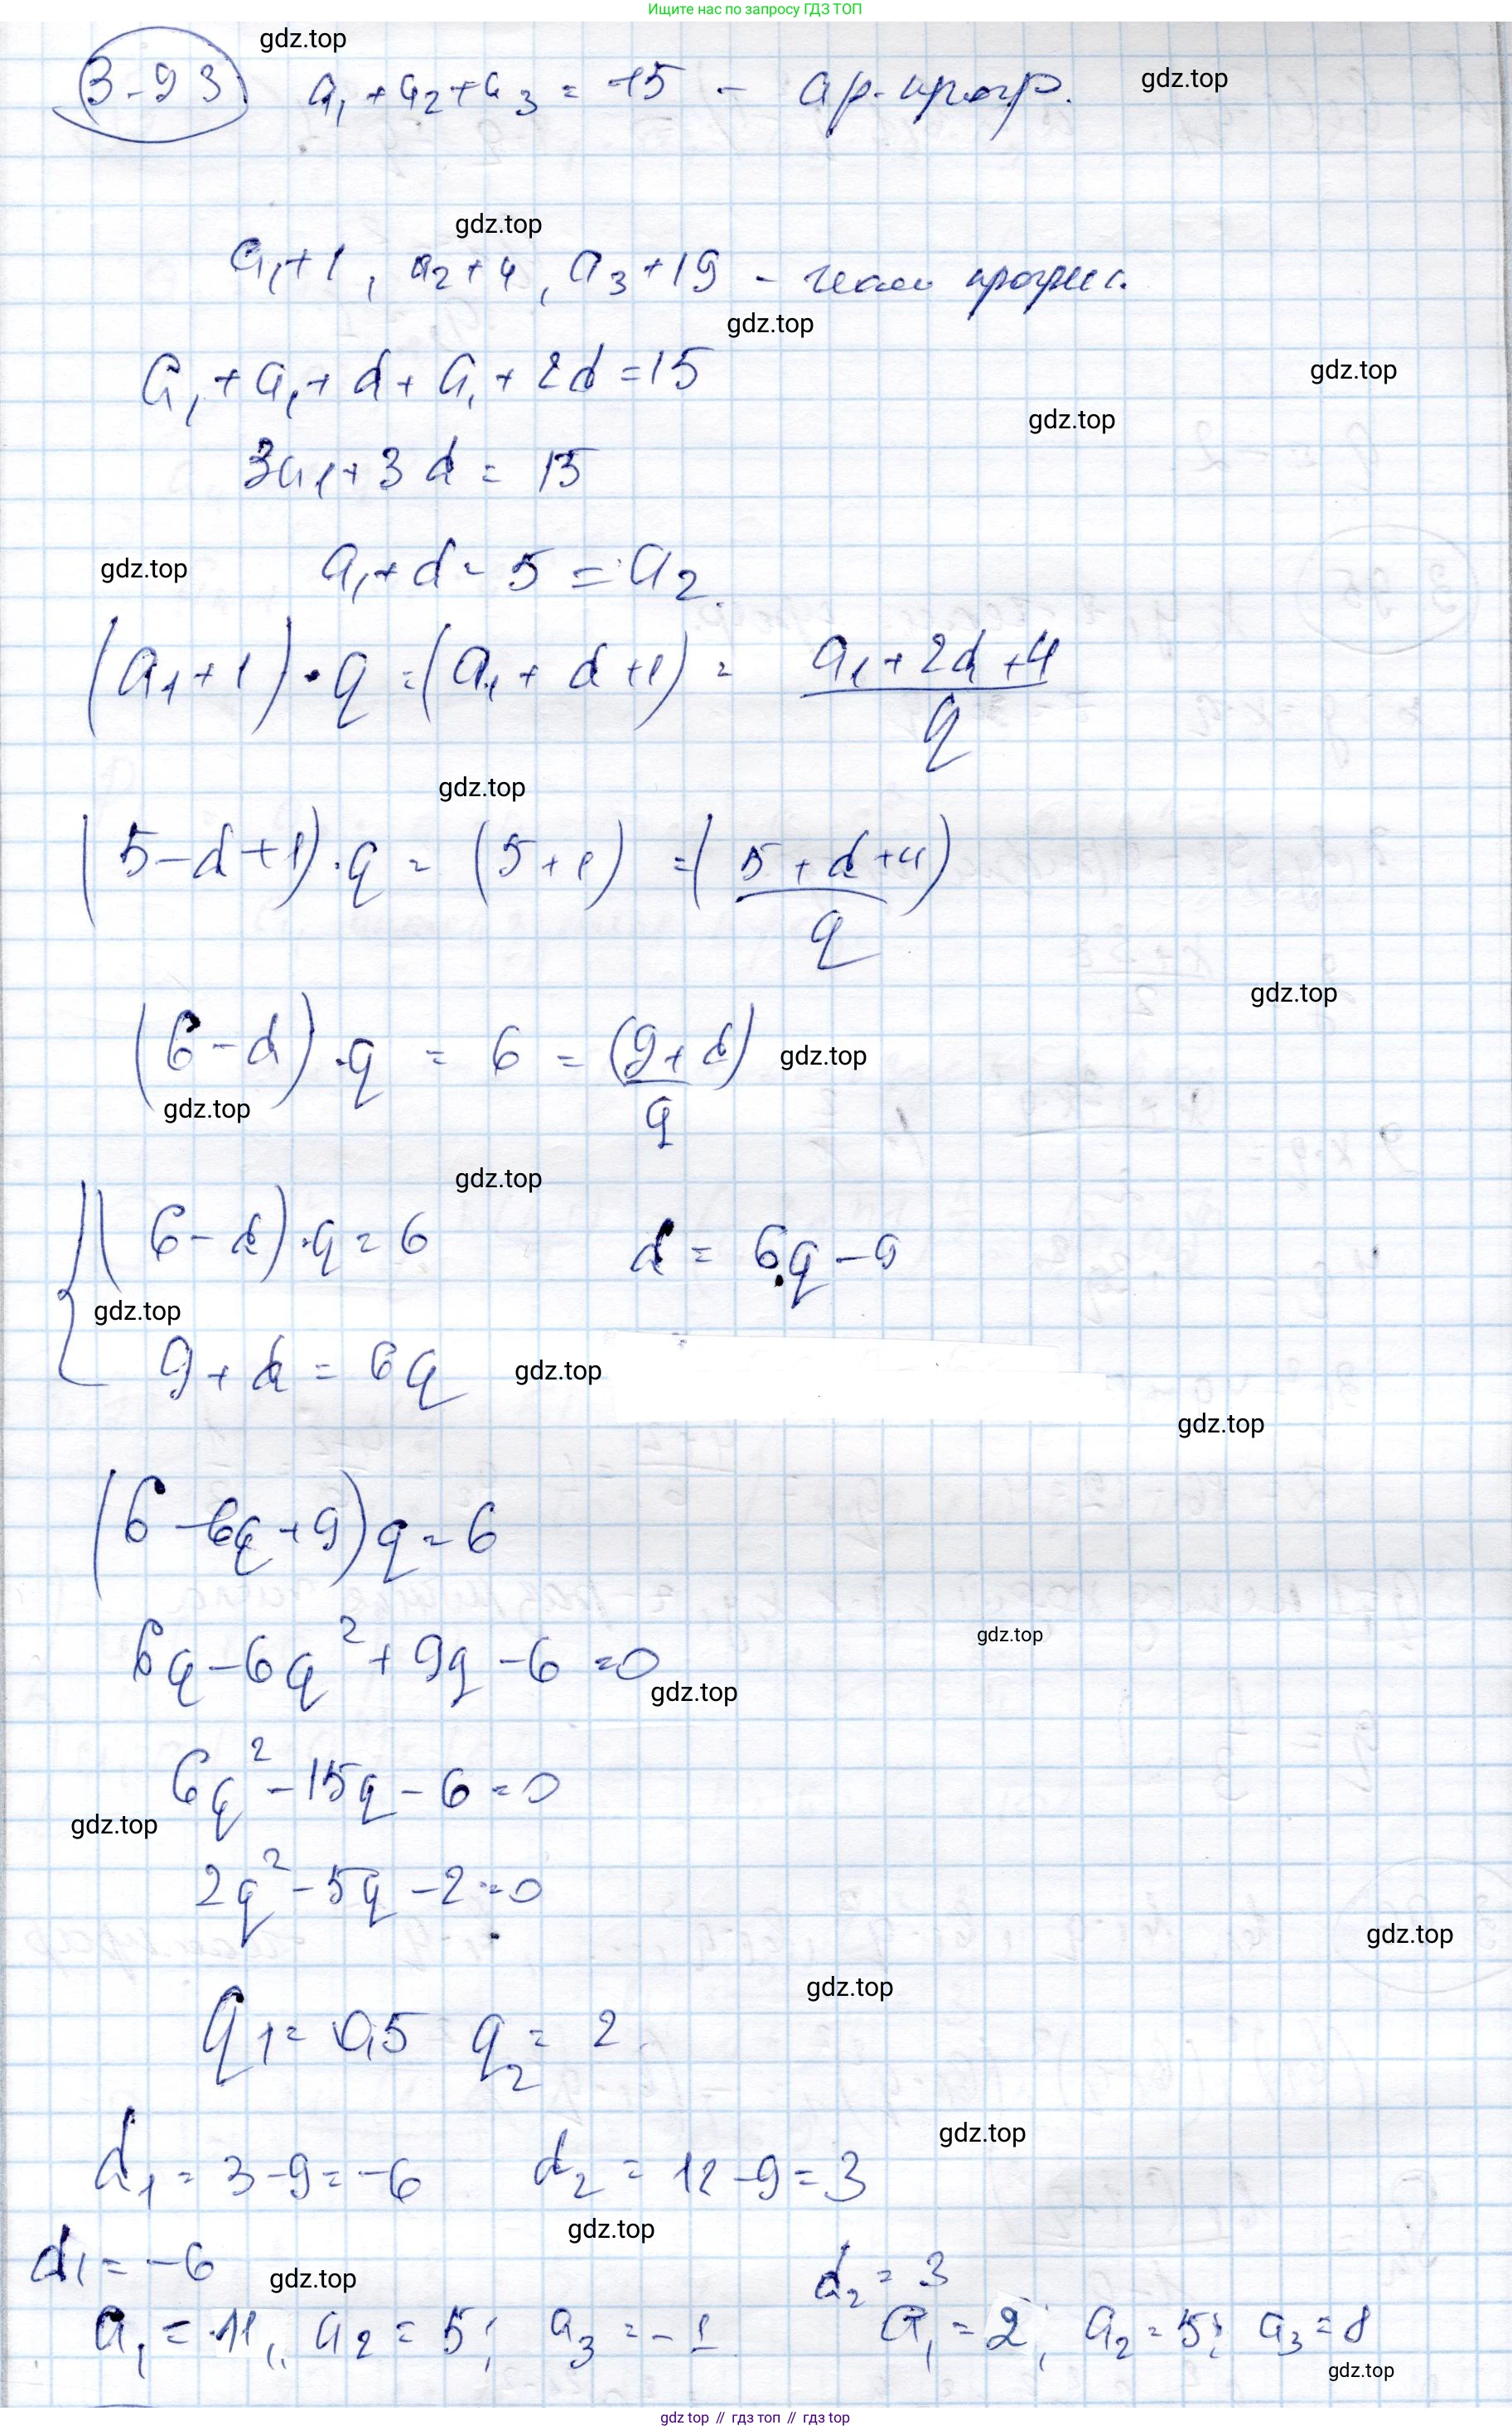 Ищите нас по запросу ГДЗ ТОП
gdz.top
3-93 a₁+a₂+a₃ = 15 - ар. прогр. gdz.top
gdz.top
a₁+1, a₂+4, a₃+19 - геом прогрес.
gdz.top
a₁+a₁+d+a₁+2d=15 gdz.top
gdz.top
3a₁+3d = 15
gdz.top a₁+d = 5 = a₂
(a₁+1)·q = (a₁+d+1) = (a₁+2d+4)/q
gdz.top
(5-d+1)·q = (5+1) = (5+d+4)/q
gdz.top
(6-d)·q = 6 = (9+d)/q gdz.top
gdz.top
gdz.top
{(6-d)·q=6 d = 6q-9
gdz.top
9+d = 6q gdz.top
gdz.top
(6-6q+9)q=6
6q-6q²+9q-6=0 gdz.top
gdz.top
6q²-15q-6=0
gdz.top
2q²-5q-2=0
gdz.top
gdz.top
q₁= 0,5 q₂= 2
gdz.top
d₁ = 3-9=-6 d₂ = 12-9=3
gdz.top
d₁= -6 gdz.top d₂= 3
a₁ = 11, a₂ = 5; a₃ = -1 a₁=2, a₂=5; a₃=8
gdz.top
gdz.top // гдз топ // гдз top